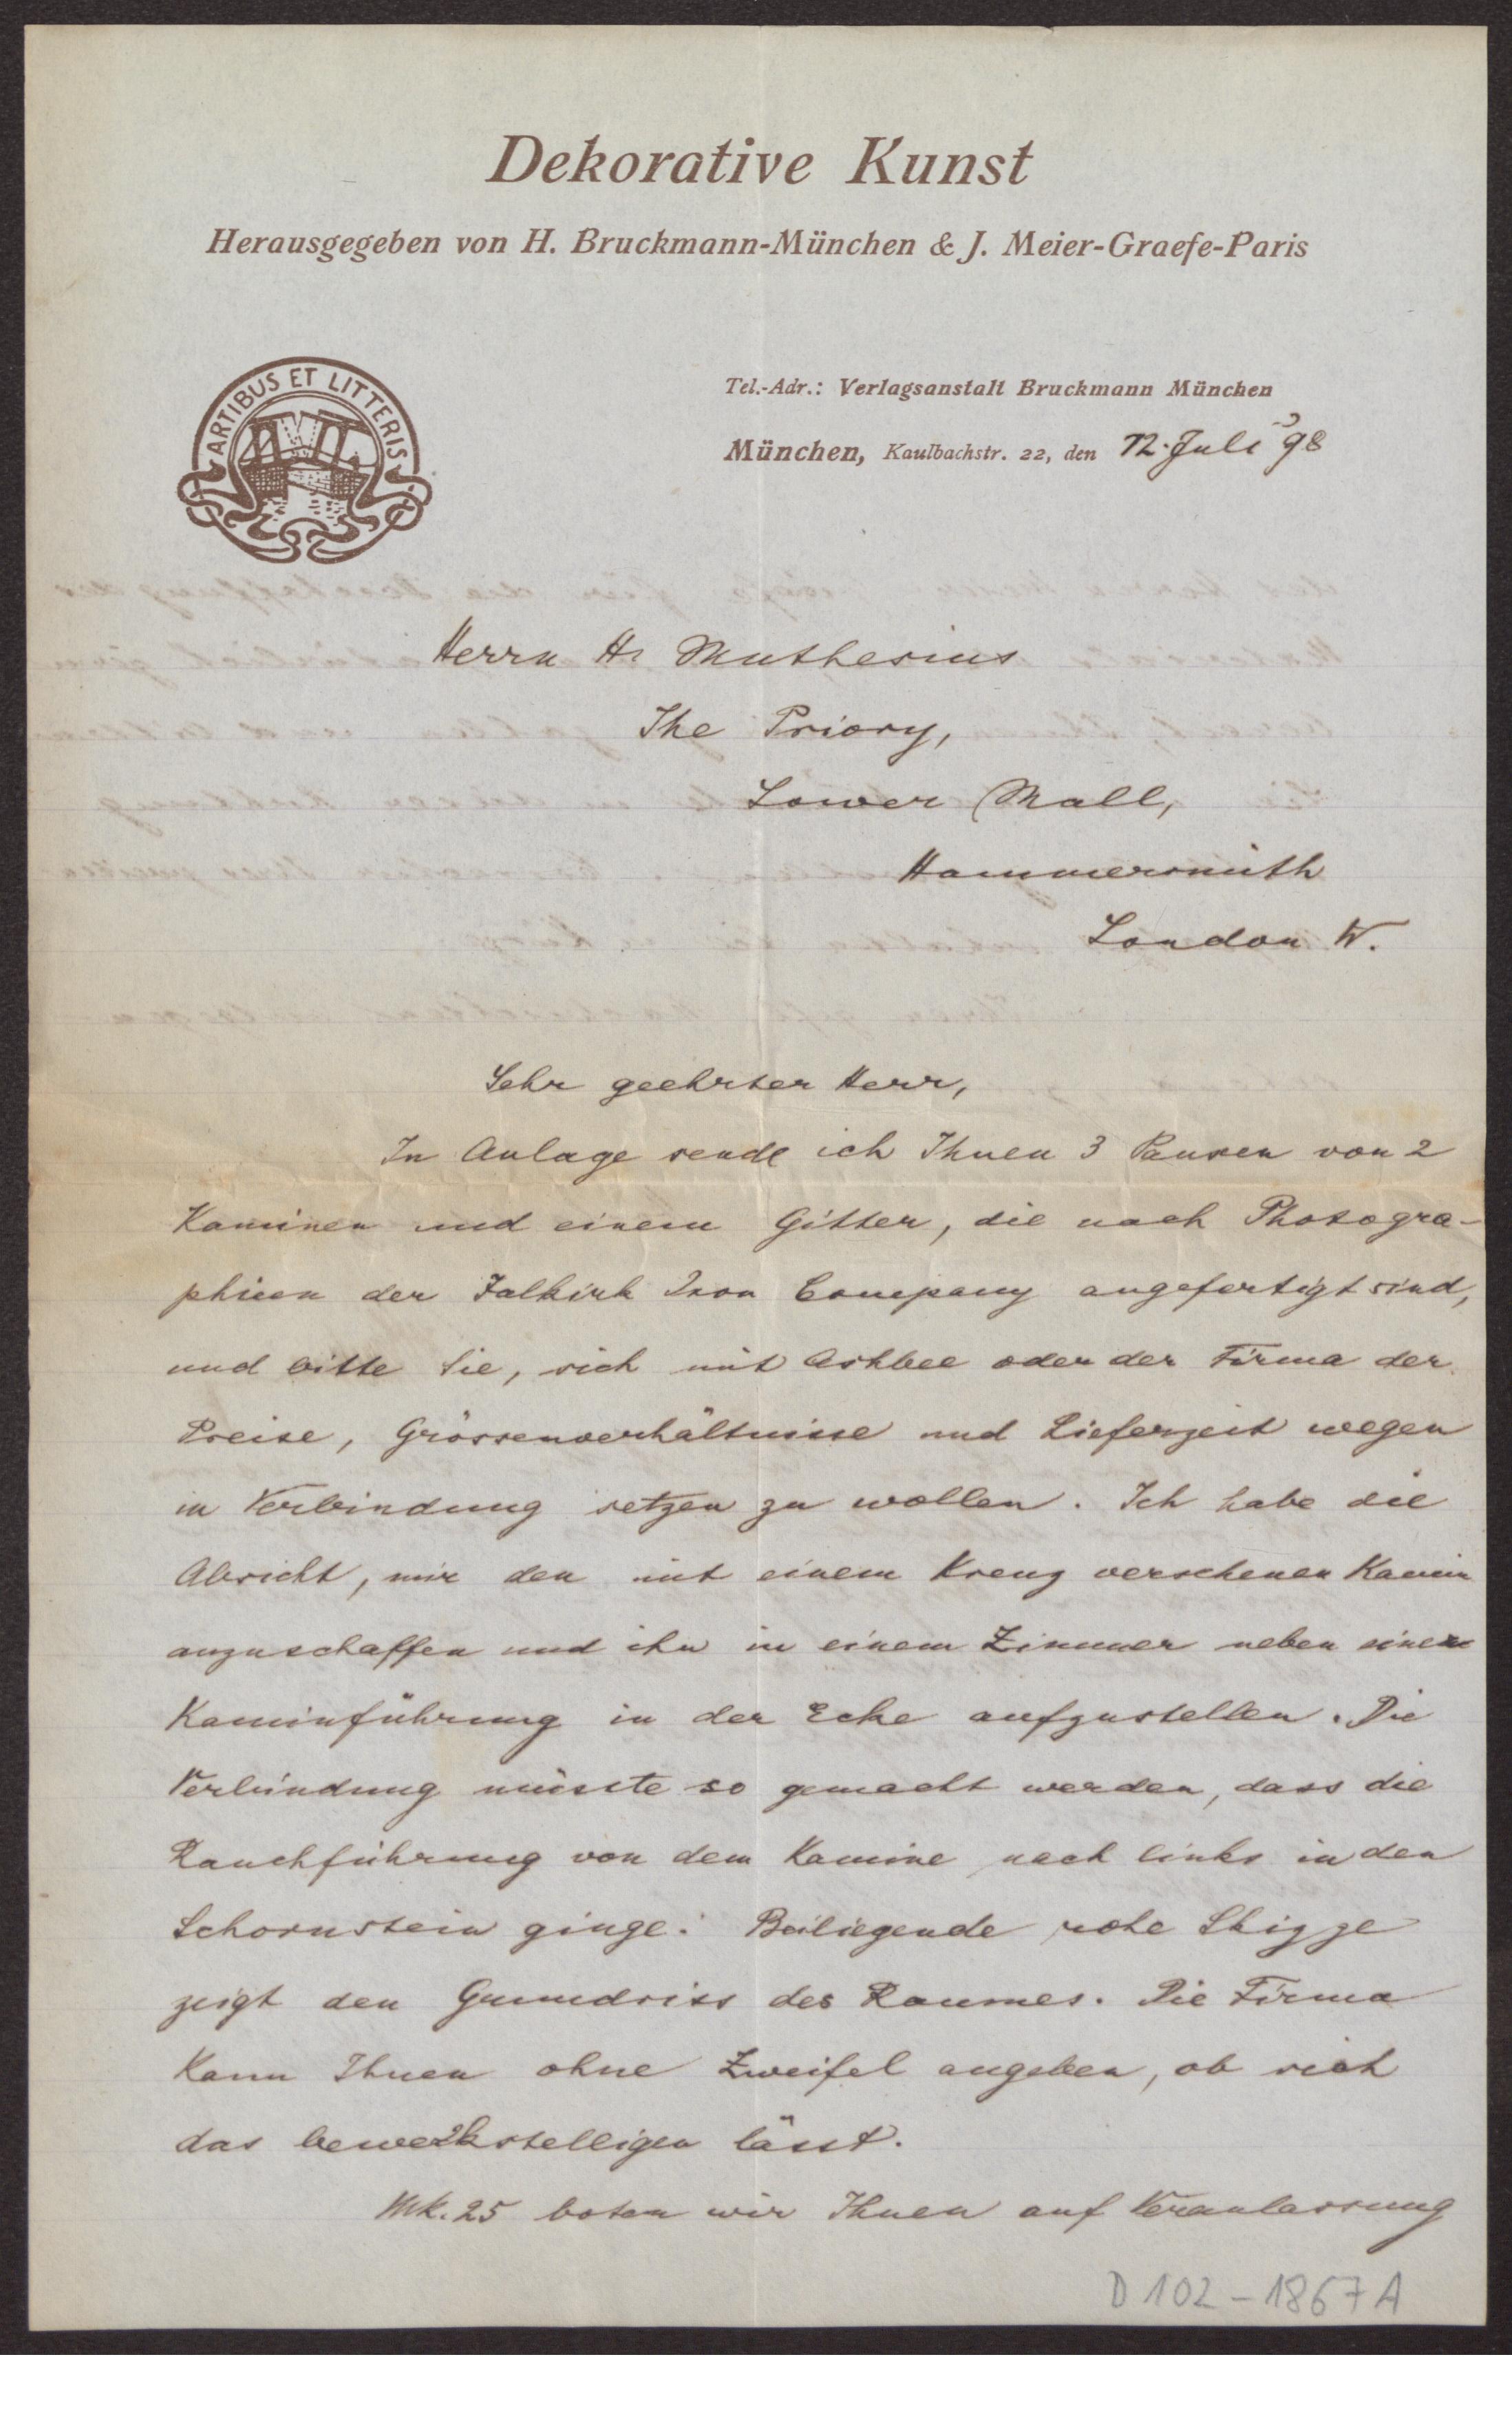 Dekorative Kunst
Herausgegeben von H. Bruckmann-München & J. Meier-Graefe-Paris
ARTIBUS ET LITTERIS
Tel.-Adr.: Verlagsanstalt Bruckmann München
München, Kaulbachstr. 22, den 12. Juli 98
Herrn H. Muthesius
The Priory,
Lower Mall,
Hammersmith
London W.
Sehr geehrter Herr,
In Anlage sende ich Ihnen 3 Pausen von 2
Kaminen und einem Gitter, die nach Photogra-
phieen der Falkirk Iron Company angefertigt sind,
und bitte Sie, sich mit Ashbee oder der Firma der
Preise, Grössenverhältnisse und Lieferzeit wegen
in Verbindung setzen zu wollen. Ich habe die
Absicht, mir den mit einem Kreuz versehenen Kamin
anzuschaffen und ihn in einem Zimmer neben einer
Kaminführung in der Ecke aufzustellen. Die
Verbindung müsste so gemacht werden, dass die
Rauchführung von dem Kamine nach links in den
Schornstein ginge. Beiliegende rohe Skizze
zeigt den Grundriss des Raumes. Die Firma
kann Ihnen ohne Zweifel angeben, ob sich
das bewerkstelligen lässt.
Mk. 25 boten wir Ihnen auf Veranlassung
D 102-1867 A